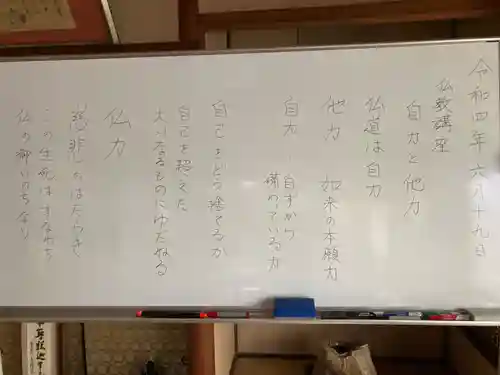 令和四年六月十九日
仏教講座
自力と他力
仏道は自力
他力 如来の本願力
自力 自ずから
備わっている力
自己をどう捨てるか
自己を超えた
大いなるものにゆだねる
仏力
慈悲のはたらき
この生死はすなわち
仏の御いのちなり